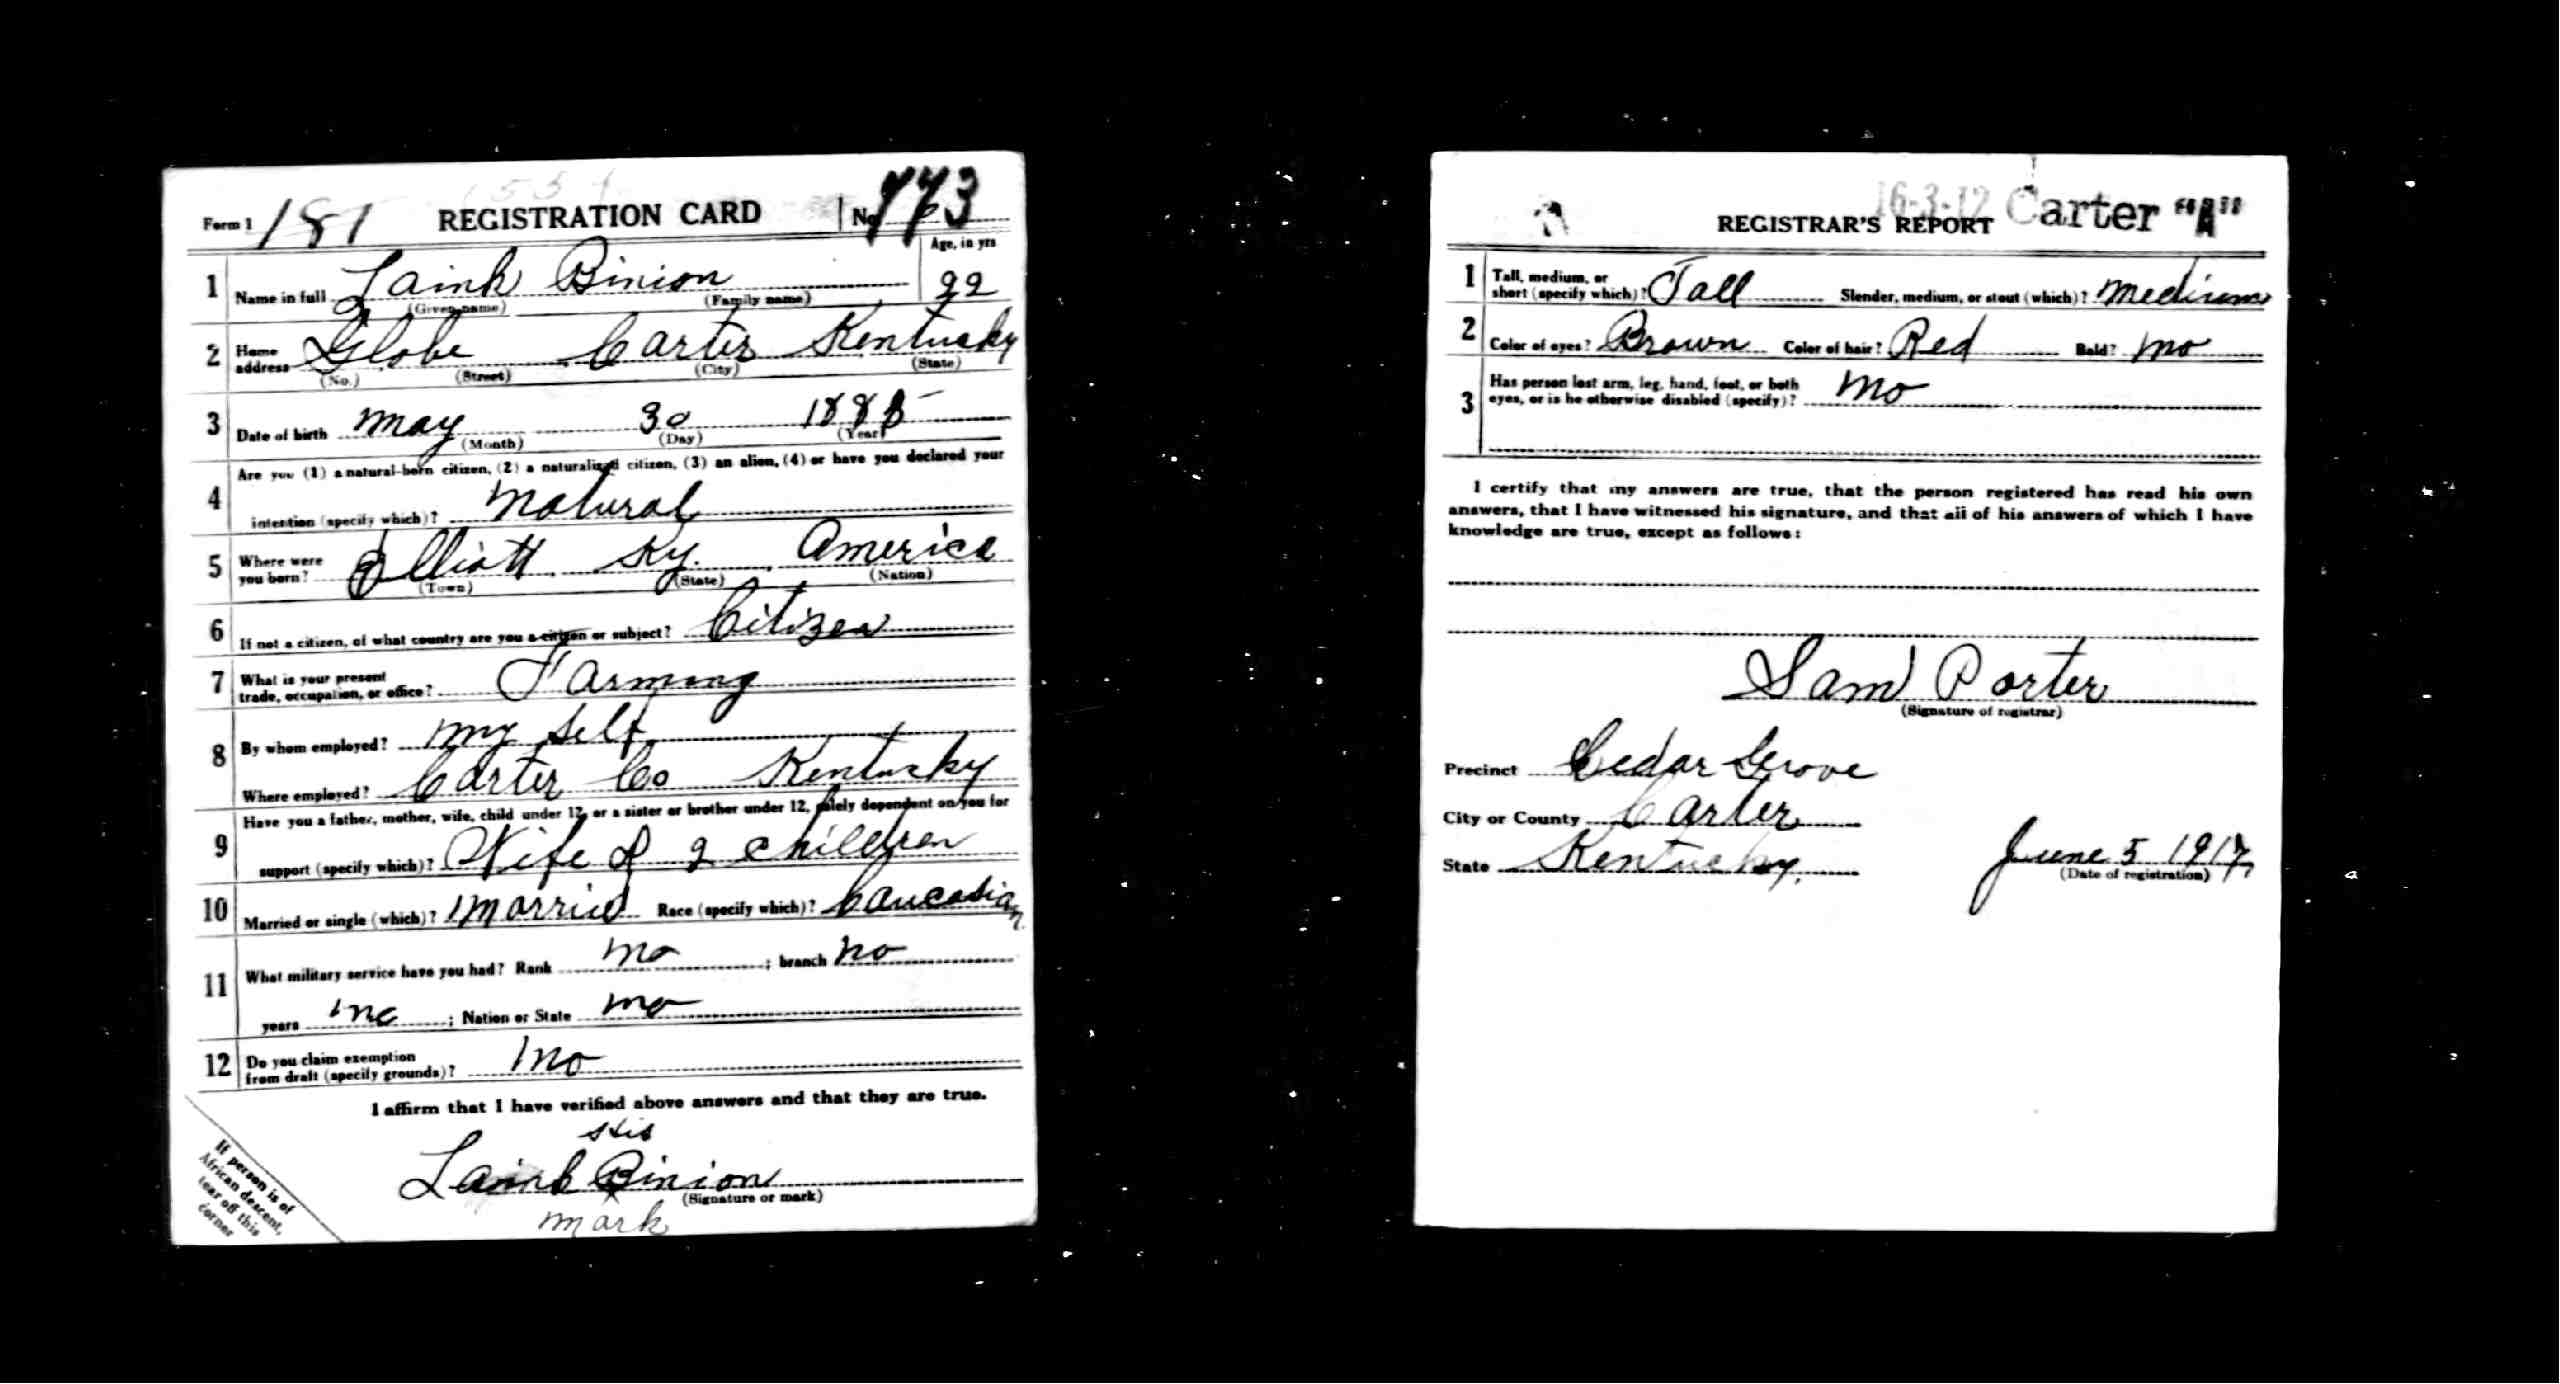 Form 1 181 REGISTRATION CARD No. 773
Age, in yrs
1 Name in full Laink Binion 22
(Given name) (Family name)
2 Home address Globe Carter Kentucky
(No.) (Street) (City) (State)
3 Date of birth May 30 1885
(Month) (Day) (Year)
Are you (1) a natural-born citizen, (2) a naturalized citizen, (3) an alien, (4) or have you declared your
4 intention (specify which)? Natural
5 Where were you born? Elliott Ky. America
(Town) (State) (Nation)
6 If not a citizen, of what country are you a citizen or subject? Citizen
7 What is your present
trade, occupation, or office? Farming
8 By whom employed? My Self
Where employed? Carter Co Kentucky
Have you a father, mother, wife, child under 12, or a sister or brother under 12, solely dependent on you for
9 support (specify which)? Wife & 2 children
10 Married or single (which)? Married Race (specify which)? Caucasian
11 What military service have you had? Rank No ; branch No
years No ; Nation or State No
12 Do you claim exemption
from draft (specify grounds)? No
I affirm that I have verified above answers and that they are true.
His
Laink Binion
(Signature or mark)
mark
If person is of
African descent,
tear off this
corner
16-3-12 Carter "A"
REGISTRAR'S REPORT
1 Tall, medium, or
short (specify which)? Tall Slender, medium, or stout (which)? Medium
2 Color of eyes? Brown Color of hair? Red Bald? No
3 Has person lost arm, leg, hand, foot, or both
eyes, or is he otherwise disabled (specify)? No
I certify that my answers are true, that the person registered has read his own
answers, that I have witnessed his signature, and that all of his answers of which I have
knowledge are true, except as follows:
Sam Porter
(Signature of registrar)
Precinct Cedar Grove
City or County Carter
State Kentucky. June 5 1917
(Date of registration)